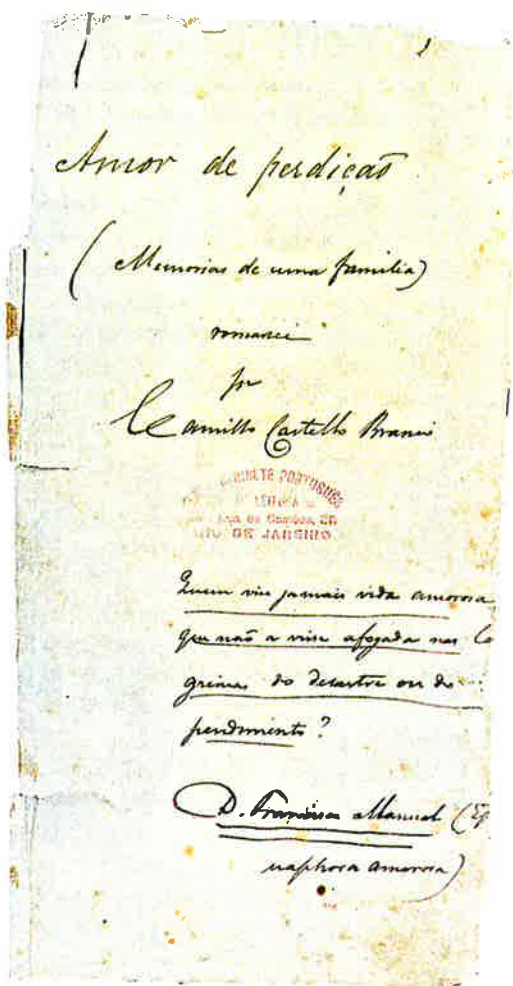 1
Amor de perdição
(Memorias de uma familia)
romance
por
Camillo Castello Branco
GABINETE PORTUGUEZ
DE LEITURA
Luiz de Camões, 30
RIO DE JANEIRO
Quem viu jamais vida amorosa
que não a visse afogada nas la
grimas do desastre ou do
pendimento?
D. Francisco Manuel (Ep
naphora amorosa)